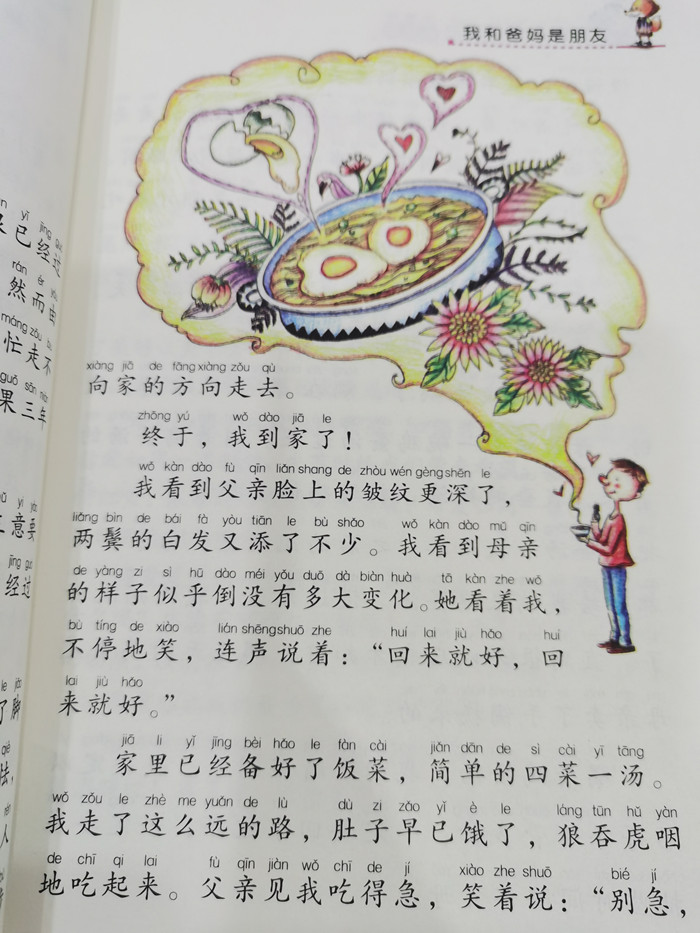 我和爸妈是朋友
xiàng jiā de fāng xiàng zǒu qù
向家的方向走去。
zhōng yú wǒ dào jiā le
终于，我到家了！
wǒ kàn dào fù qīn liǎn shang de zhòu wén gèng shēn le
我看到父亲脸上的皱纹更深了，
liǎng bìn de bái fà yòu tiān le bù shǎo wǒ kàn dào mǔ qīn
两鬓的白发又添了不少。我看到母亲
de yàng zi sì hū dào méi yǒu duō dà biàn huà tā kàn zhe wǒ
的样子似乎倒没有多大变化。她看着我，
bù tíng de xiào lián shēng shuō zhe huí lai jiù hǎo huí
不停地笑，连声说着：“回来就好，回
lai jiù hǎo
来就好。”
jiā li yǐ jīng bèi hǎo le fàn cài jiǎn dān de sì cài yī tāng
家里已经备好了饭菜，简单的四菜一汤。
wǒ zǒu le zhè me yuǎn de lù dù zi zǎo yǐ è le láng tūn hǔ yàn
我走了这么远的路，肚子早已饿了，狼吞虎咽
de chī qi lai fù qīn jiàn wǒ chī de jí xiào zhe shuō bié jí
地吃起来。父亲见我吃得急，笑着说：“别急，
yǐ jīng guò
已经过
rán ér yóu
然而由
máng zǒu bù
忙走不
guǒ sān nián
果三年
意要
经过
了脚
怯，
人